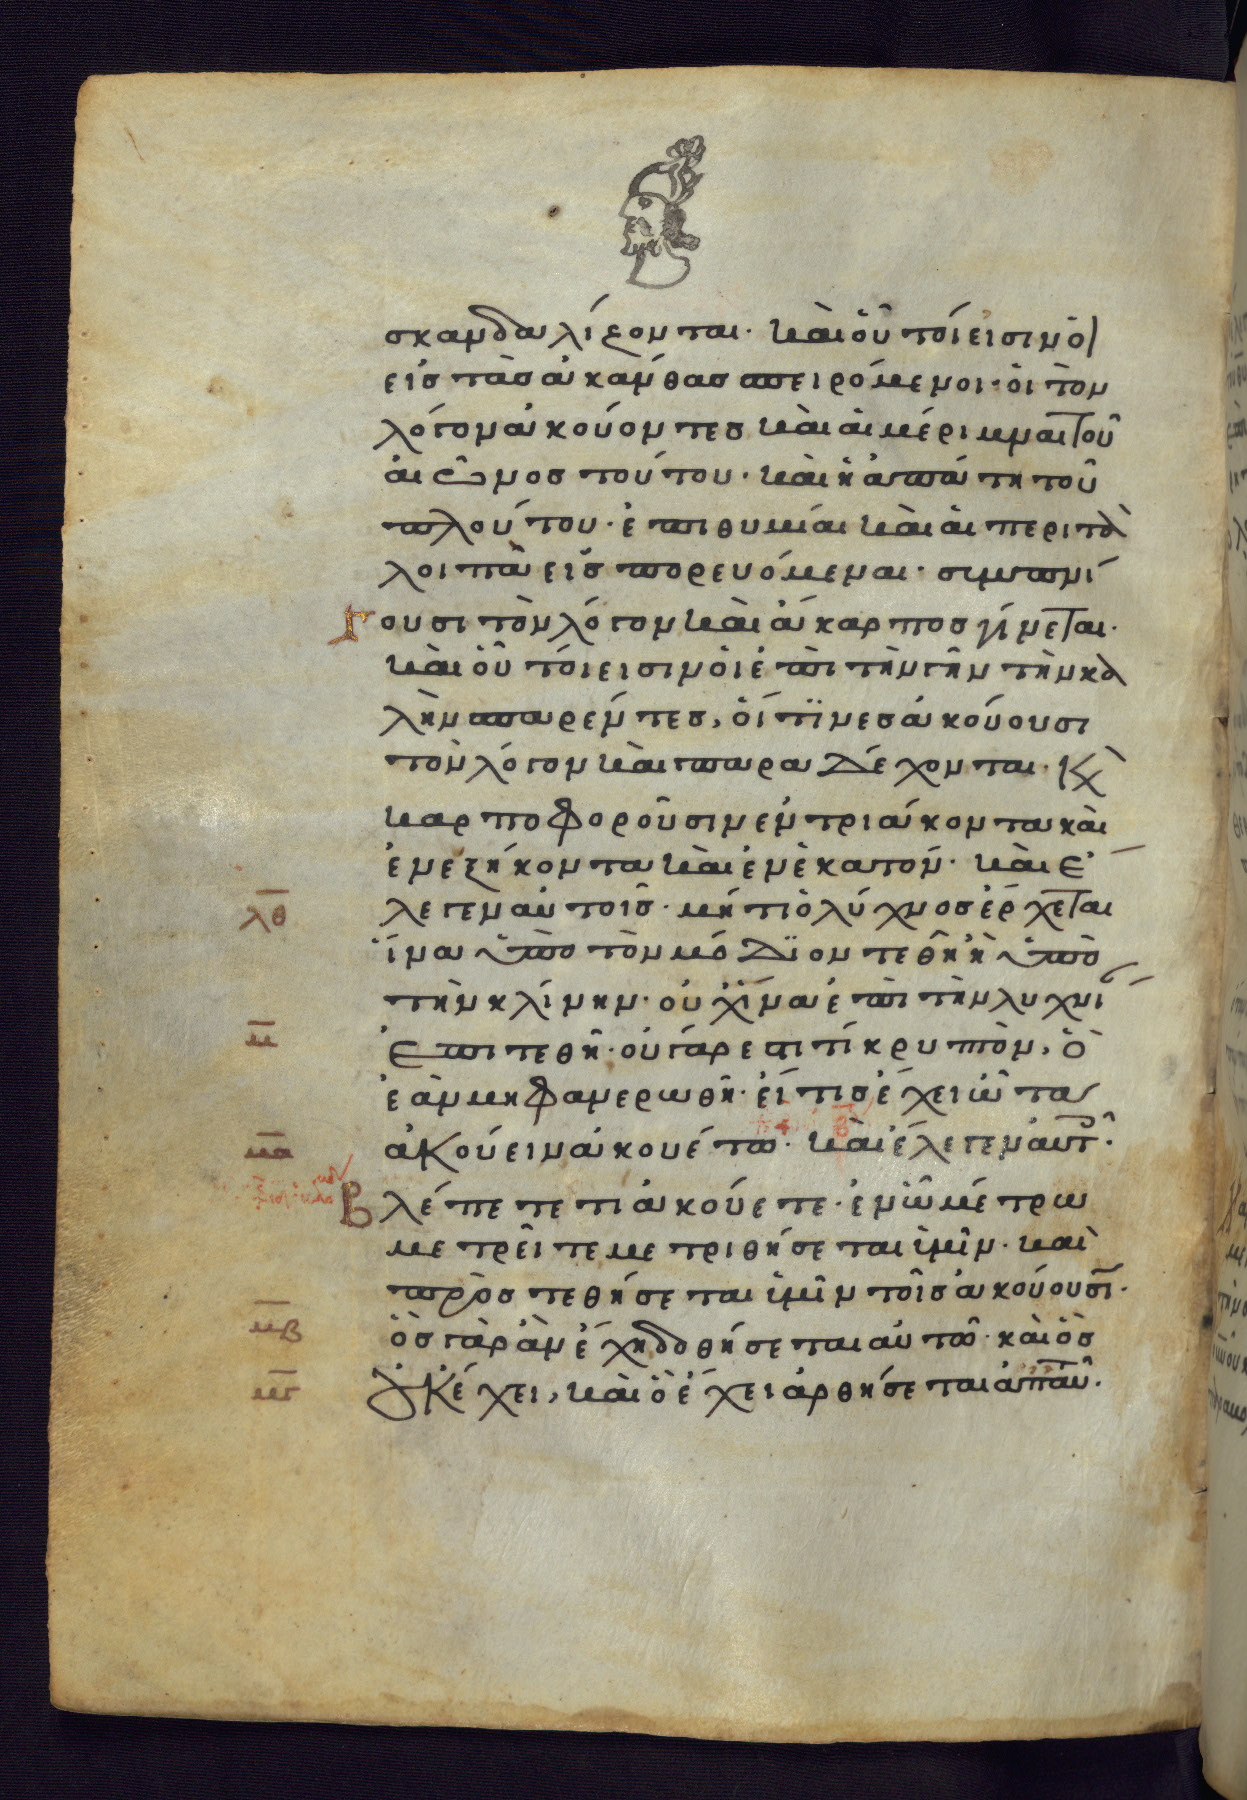 σκανδαλίζονται· καὶ οὗτοί εἰσιν ὁι
εἰς τὰς ἀκάνθας σπειρόμενοι· ὁι τὸν
λόγον ἀκούοντες καὶ ἁι μέριμναι τοῦ
ἀιῶνος τούτου· καὶ ἡ ἀπάτη τοῦ
πλούτου· ἐπιθυμίαι καὶ ἁι περι τὰ
λοιπὰ εἰσπορευόμεναι· συμπνί
γουσι τὸν λόγον καὶ ἄκαρπος γίνεται·
καὶ οὗτοί εἰσιν ὁι ἐπι τὴν γῆν τὴν κα
λὴν σπαρέντες, ὁίτϊνες ἀκούουσι
τὸν λόγον καὶ παραδέχονται· κ
καρποφοροῦσιν ἐν τριάκοντα καὶ
ἐν ἑξήκοντα καὶ ἐν ἑκατον· καὶ ἐ
λθ λεγεν αὐτοῖς· μήτι ὁ λύχνος ἔρχεται
ἵνα ὑπὸ τὸν μόδϊον τεθῆ ἢ ὑπὸ
τὴν κλίνην· οὐχ ἵνα ἐπὶ τὴν λυχνί
μ ἐπιτεθῆ· οὐ γάρ ἐστι τί κρυπτὸν, ὃ
ἐὰν μη φανερωθῆ· ἔι τις ἔχει ὦτα
μα ἀκούειν ἀκουέτω· καὶ ἔλεγεν ἀυτ·
Βλέπετε τι ἀκούετε· ἐν ὧ μέτρω
μετρεῖτε μετριθήσεται ὑμῖν· καὶ
προστεθήσεται ὑμῖν τοῖς ἀκούουσι·
μβ ὃς γὰρ ἂν ἔχη δοθήσεται αὐτῶ· καὶ ὃς
μγ οὐκ ἔχει, καὶ ὃ ἔχει ἀρθήσεται ἀπαυ·